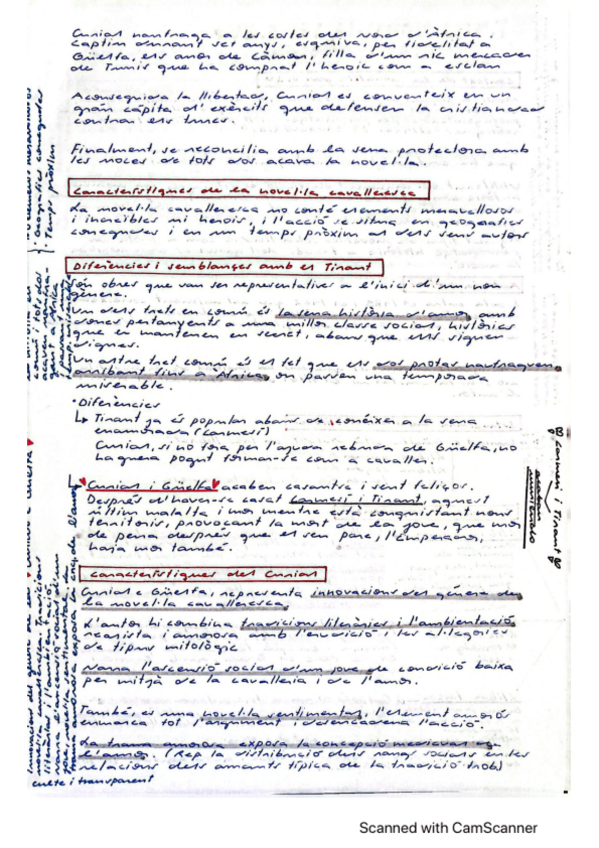 Curial naufraga a les costes del nord d'Àfrica.
Captiu durant set anys, esquiva, per fidelitat a
Güelfa, els amor de Càmar, filla d'un ric mercader
de Tunis que ha comprat l'heroic com a esclau
Aconseguida la llibertat, Curial es converteix en un
gran capità d'exèrcits que defensen la cristiandat
contra els turcs.
Finalment, se reconcilia amb la seua protectora amb
les noces de tots dos acaba la novel·la.
Característiques de la novel·la cavalleresca
La novel·la cavalleresca no conté elements meravellosos
i increïbles ni herois, i l'acció se situa en geografies
conegudes i en un temps pròxim al dels seus autors
Diferències i semblances amb el Tirant
Són obres que van ser representatives a l'inici d'un nou
gènere.
Un dels trets en comú és la seua història d'amor, amb
dones pertanyents a una millor classe social, històries
que es mantenen en secret, abans que ells siguen
dignes.
Un altre tret comú és el fet que els dos protas naufraguen,
arribant fins a l'Àfrica, on passen una temporada
miserable.
*Diferències
↳ Tirant ja és popular abans de conéixer a la seua
enamorada (Carmesí)
Curial, si no fora per l'ajuda rebuda de Güelfa, no
haguera pogut formar-se com a cavaller.
↳ Curial i Güelfa acaben casant-se i sent feliços.
Després d'haver-se casat Carmesí i Tirant, aquest
últim malalta i mor mentre està conquistant nous
territoris, provocant la mort de la jove, que mor
de pena després que el seu pare, l'Emperador,
haja mort també.
Carmesí i Tirant
acaban
muriendo
Característiques del Curial
Curial e Güelfa, representa innovacions del gènere de
la novel·la cavalleresca
L'autor hi combina tradicions literàries i l'ambientació
realista i amorosa amb l'erudició i les al·legories
de tipus mitològic
Narra l'ascenció social d'un jove de condició baixa
per mitjà de la cavalleria i de l'amor.
També, és una novel·la sentimental, l'element amorós
emmarca tot l'argument i desencadena l'acció.
La trama amorosa exposa la concepció medieval
de l'amor. (Rep la distribució dels rangs socials en les
relacions dels amants típica de la tradició trob)
culte i transparent
Scanned with CamScanner